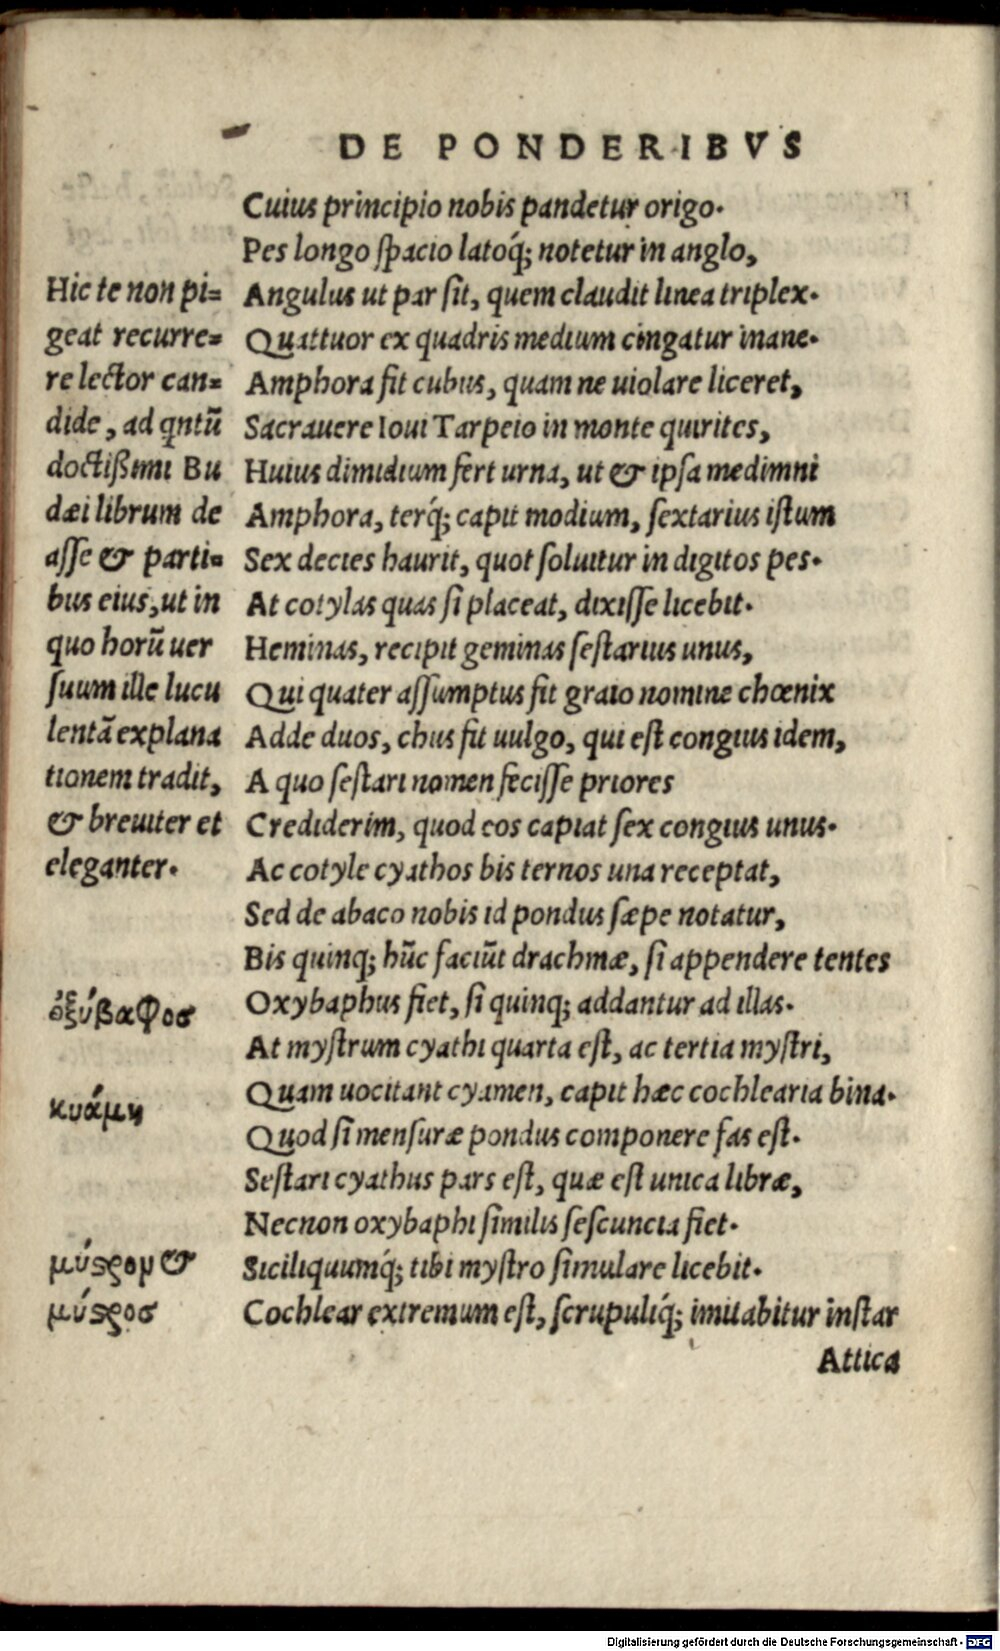 DE PONDERIBVS
Cuius principio nobis pandetur origo.
Pes longo spacio latoq́; notetur in anglo,
Angulus ut par sit, quem claudit linea triplex.
Quattuor ex quadris medium cingatur inane.
Amphora fit cubus, quam ne uiolare liceret,
Sacrauere Ioui Tarpeio in monte quirites,
Huius dimidium fert urna, ut & ipsa medimni
Amphora, terq́; capit modium, sextarius istum
Sex decies haurit, quot soluitur in digitos pes.
At cotylas quas si placeat, dixisse licebit.
Heminas, recipit geminas sestarius unus,
Qui quater assumptus fit graio nomine chœnix
Adde duos, chus fit uulgo, qui est congius idem,
A quo sestari nomen fecisse priores
Crediderim, quod eos capiat sex congius unus.
Ac cotyle cyathos bis ternos una receptat,
Sed de abaco nobis id pondus sæpe notatur,
Bis quinq; hūc faciūt drachmæ, si appendere tentes
Oxybaphus fiet, si quinq; addantur ad illas.
At mystrum cyathi quarta est, ac tertia mystri,
Quam uocitant cyamen, capit hæc cochlearia bina.
Quod si mensuræ pondus componere fas est.
Sestari cyathus pars est, quæ est unica libræ,
Necnon oxybaphi similis sescuncia fiet.
Siciliquumq́; tibi mystro simulare licebit.
Cochlear extremum est, scrupuliq́; imitabitur instar
Attica
Hic te non pi=
geat recurre=
re lector can=
dide, ad qntū
doctißimi Bu
dæi librum de
asse & parti=
bus eius, ut in
quo horū uer
suum ille lucu
lentā explana
tionem tradit,
& breuiter et
eleganter.
ὀξύβαφοσ
κυάμη
μύϛρομ &
μύϛροσ
Digitalisierung gefördert durch die Deutsche Forschungsgemeinschaft - DFG